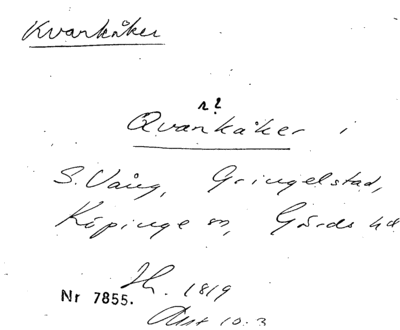 Kvarnkåker
r?
Qvarnkåker i
S. Vång, Gringelstad,
Köpinge sn, Gärds hd
Sk. 1819
Nr 7855.
Akt 10:3